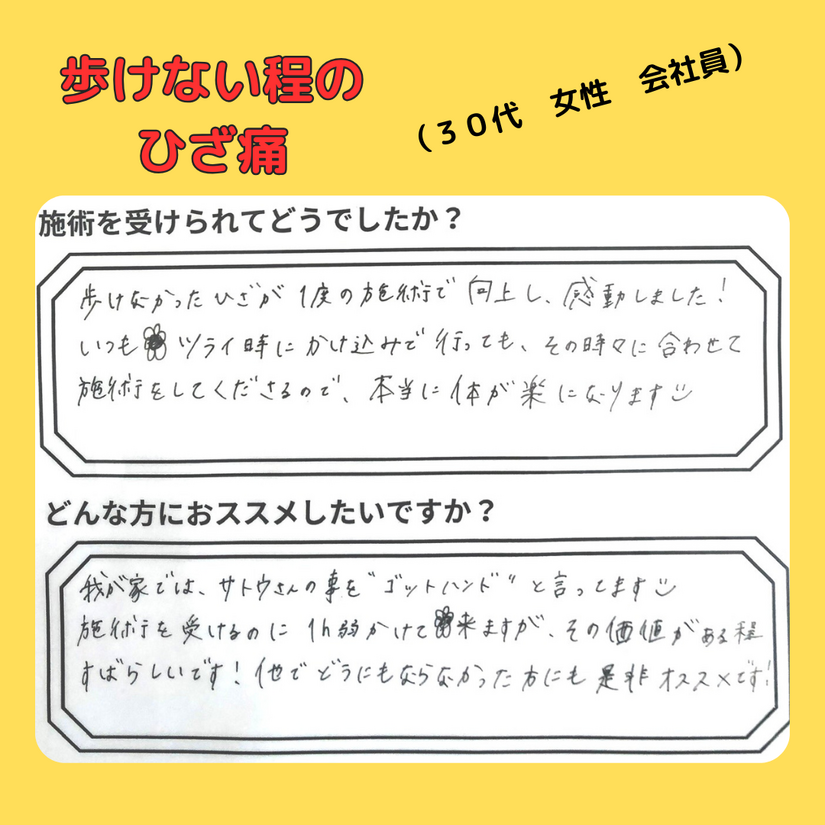 歩けない程の
ひざ痛
（３０代　女性　会社員）
施術を受けられてどうでしたか？
歩けなかったひざが1度の施術で向上し、感動しました！
いつもツライ時にかけ込みで行っても、その時々に合わせて
施術をしてくださるので、本当に体が楽になります
どんな方におススメしたいですか？
我が家では、サトウさんの事を"ゴットハンド"と言ってます
施術を受けるのに1h弱かけて来ますが、その価値がある程
すばらしいです！他でどうにもならなかった方にも是非オススメです！